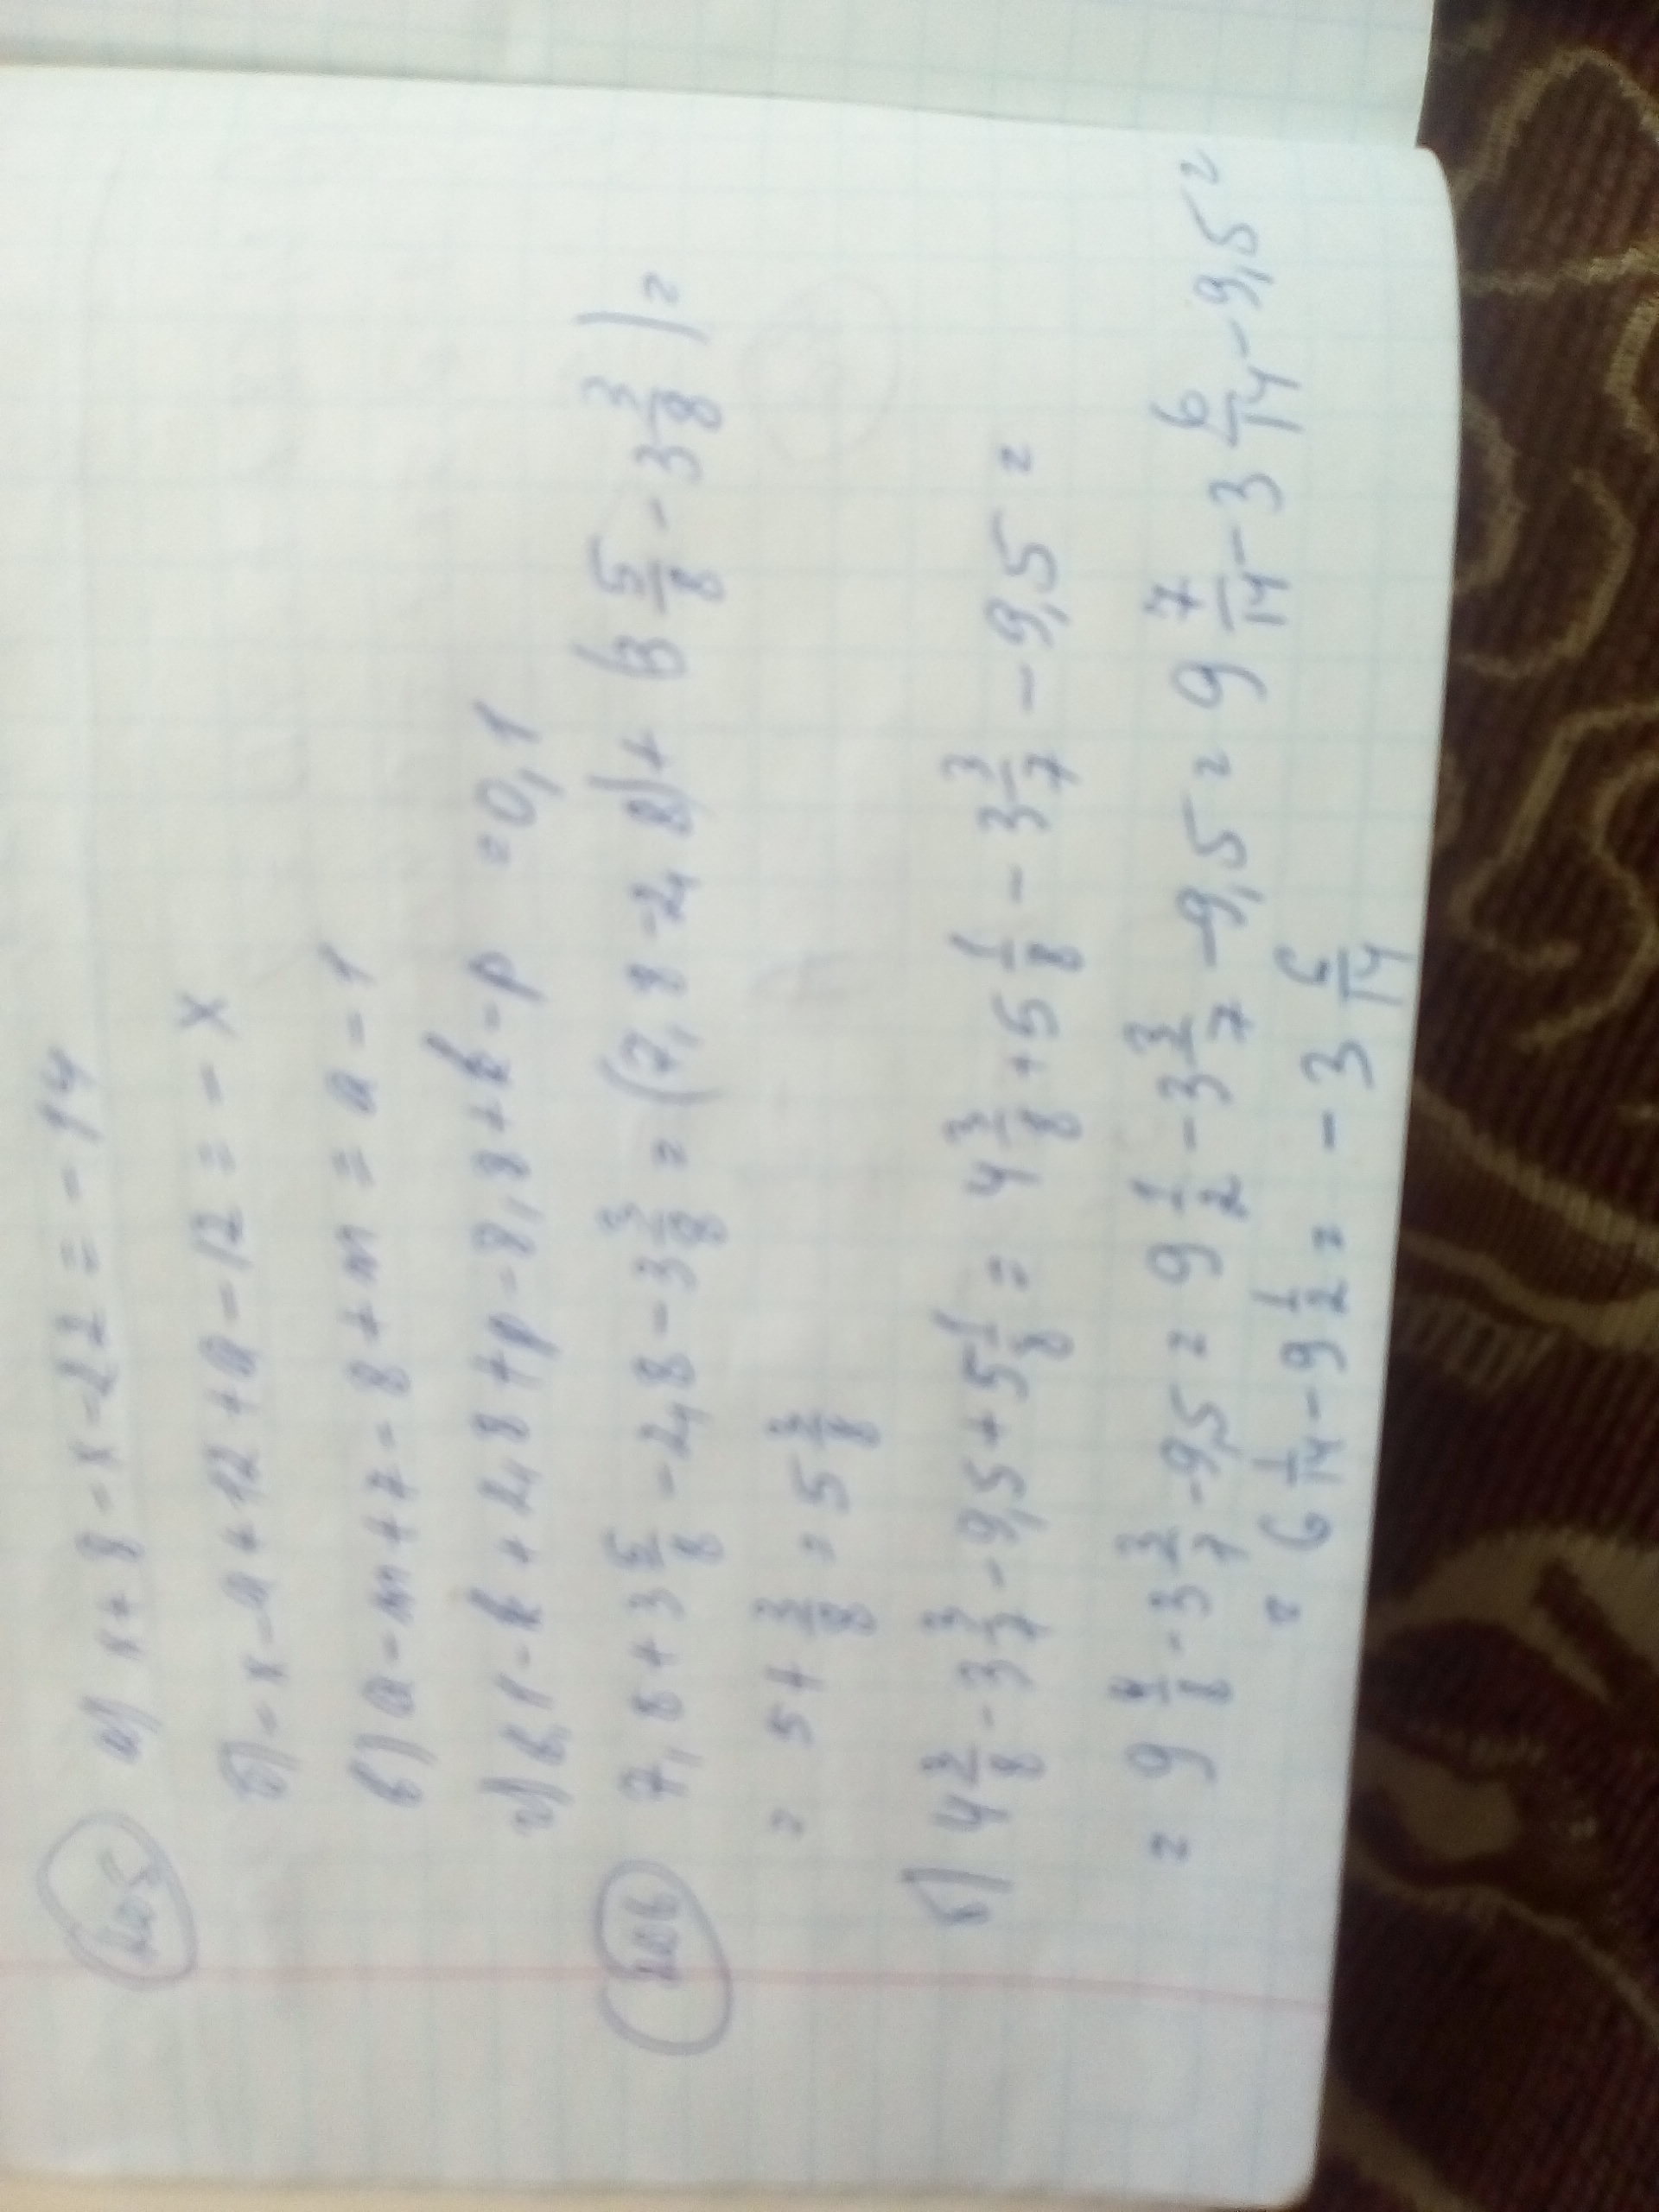 205 а) x+8-x-22=-14
б) -x-a+12+a-12=-x
в) a-m+7-8+m=a-1
г) 6,1-k+2,8+p-8,8+k-p=0,1
206 7,8+3 5/8-2,8-3 3/8=(7,8-2,8)+(3 5/8-3 3/8)=
=5+2/8=5 2/8
б) 4 3/8-3 3/7-9,5+5 1/8=4 3/8+5 1/8-3 3/7-9,5=
=9 4/8-3 3/7-9,5=9 1/2-3 3/7-9,5=9 7/14-3 6/14-9,5=
=6 1/14-9 1/2=-3 6/14